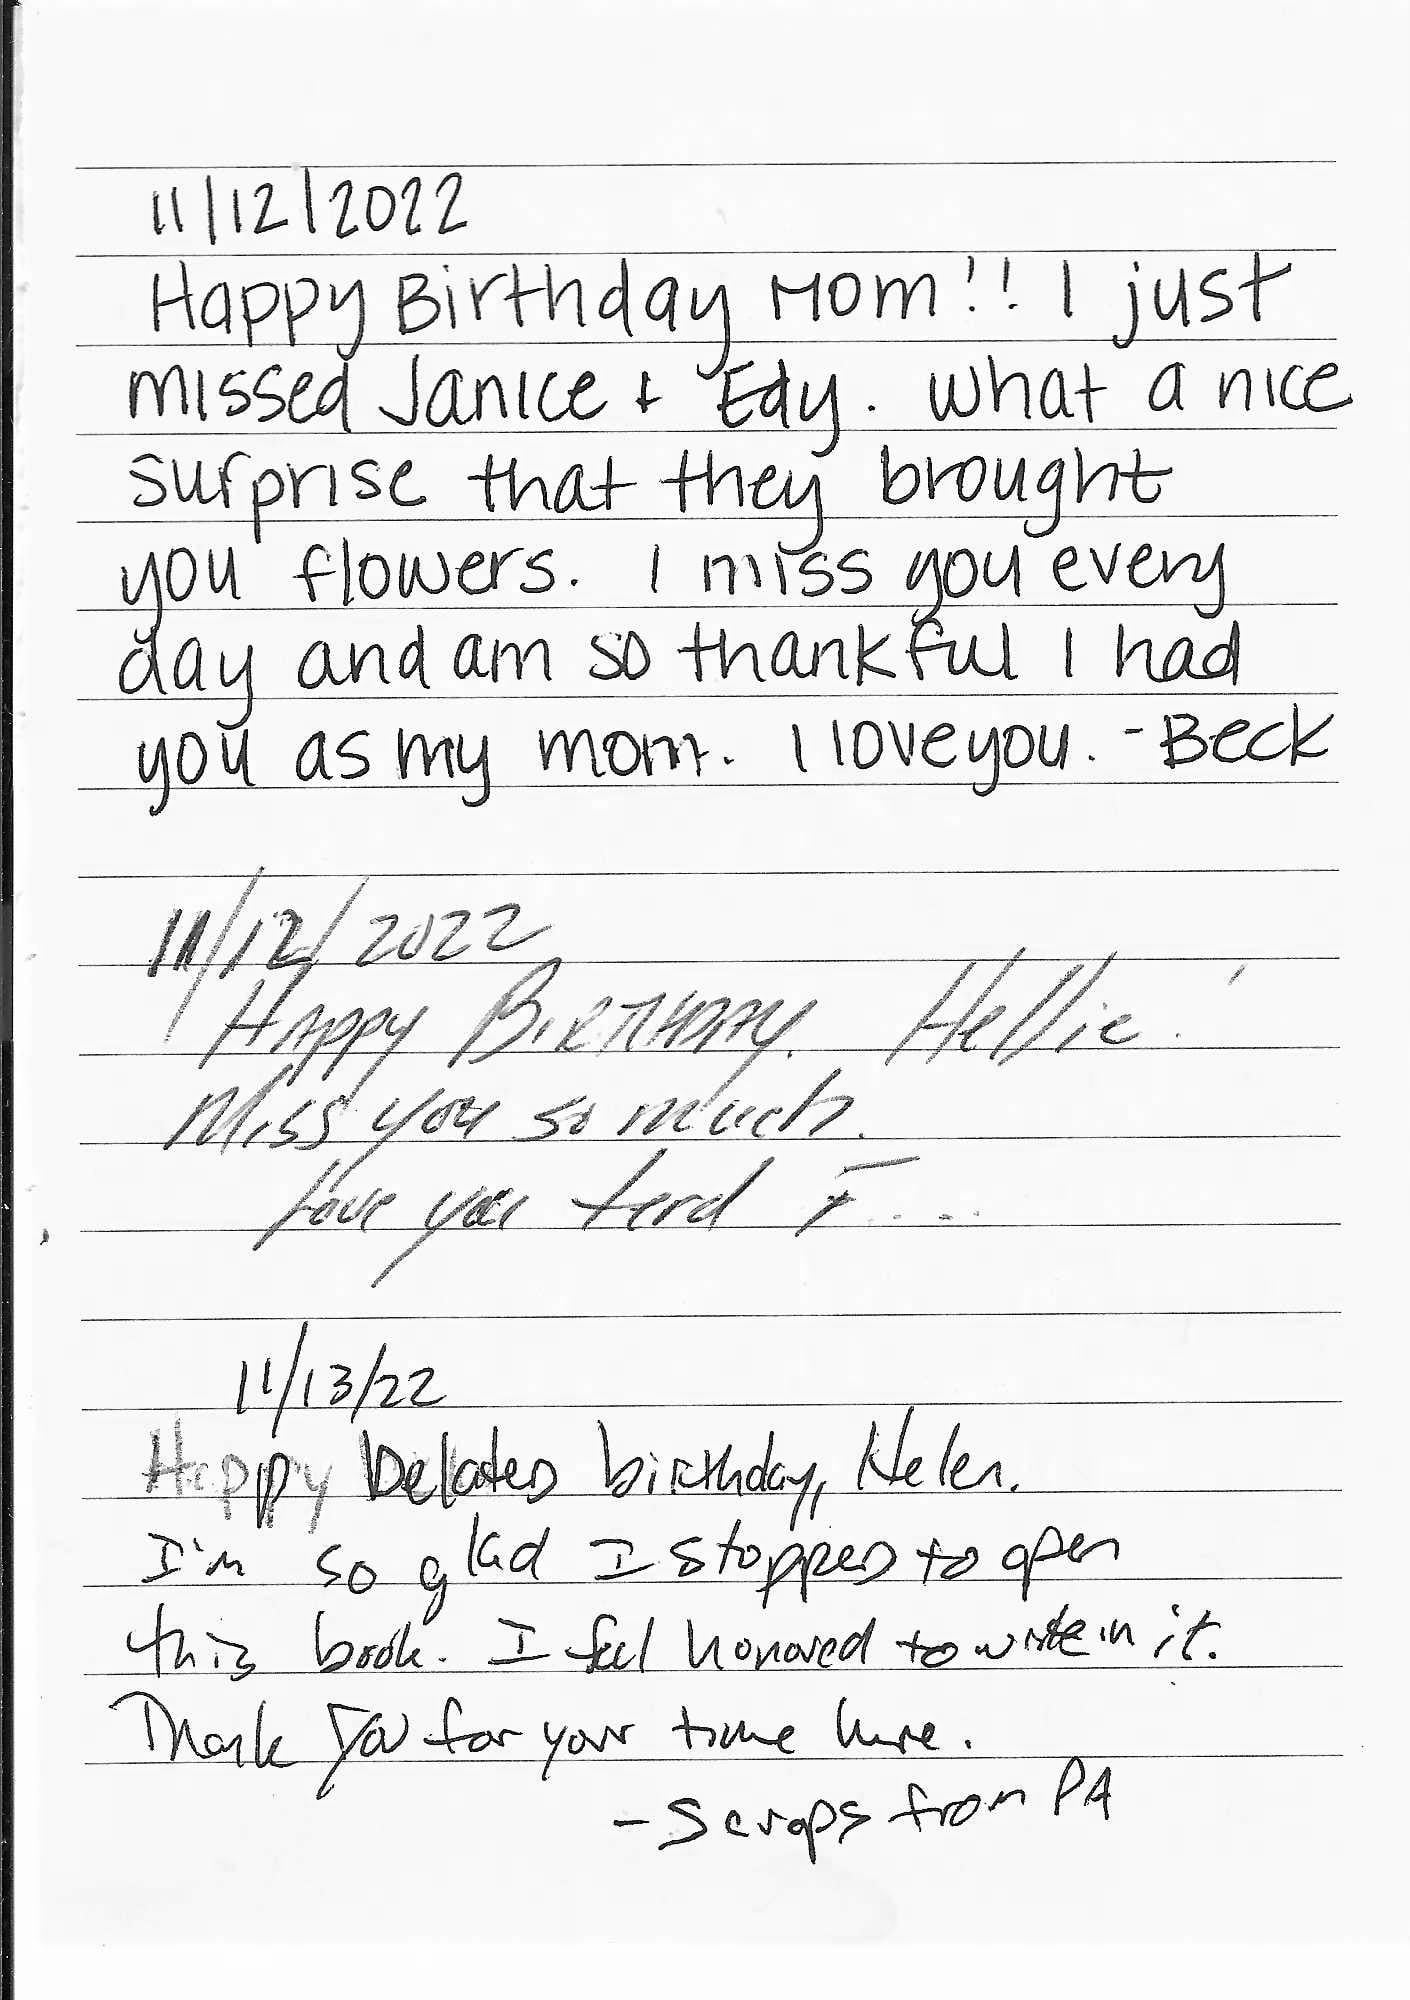 11/12/2022
Happy Birthday Mom!! I just
missed Janice + Edy. What a nice
surprise that they brought
you flowers. I miss you every
day and am so thankful I had
you as my mom. I love you. - Beck
11/12/2022
Happy BIRTHDAY. Hellie!
Miss you so much.
Love you terd F....
11/13/22
Happy belated birthday, Helen.
I'm so glad I stopped to open
this book. I feel honored to write in it.
Thank you for your time here.
- Scraps from PA